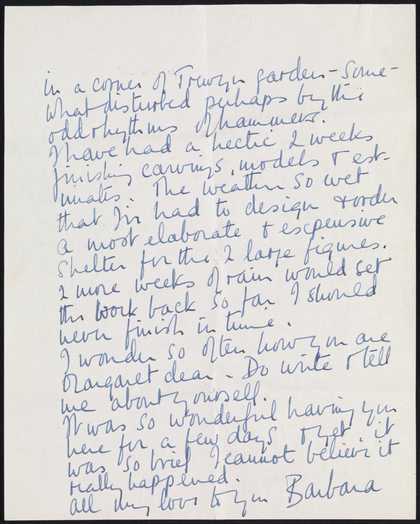 in a corner of Trewyn garden – some-
what disturbed perhaps by the
odd rhythms of hammers.
I have had a hectic 2 weeks
finishing carvings, models & est-
imates. The weather so wet
that I've had to design & order
a most elaborate & expensive
shelter for the 2 large figures.
2 more weeks of rain would set
the work back so far I should
never finish in time.
I wonder so often how you are
Margaret dear – Do write & tell
me about yourself.
It was so wonderful having you
here for a few days & yet it
was so brief I cannot believe it
really happened.
All my love to you Barbara